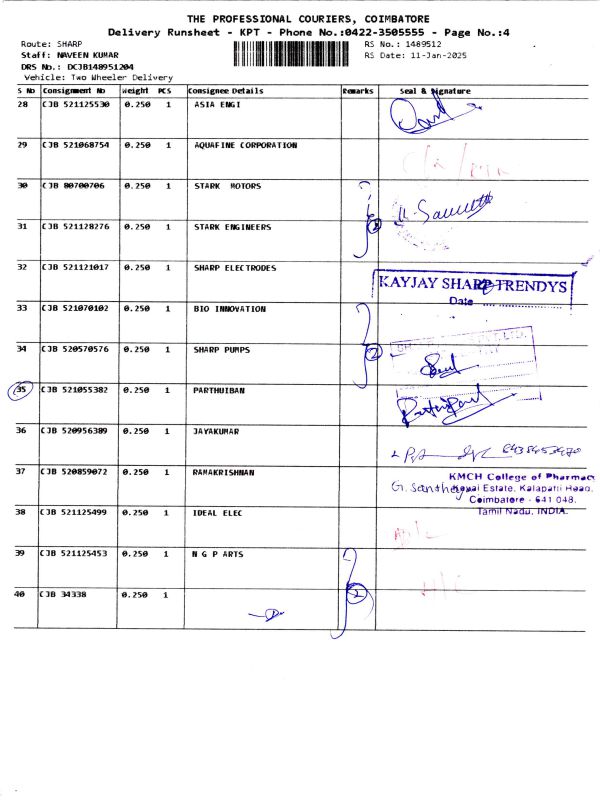 THE PROFESSIONAL COURIERS, COIMBATORE
Delivery Runsheet - KPT - Phone No.:0422-3505555 - Page No.:4
Route: SHARP
RS No.: 1489512
Staff: NAVEEN KUMAR
RS Date: 11-Jan-2025
DRS No.: DCJB148951204
Vehicle: Two Wheeler Delivery
S No Consignment No Weight PCS Consignee Details Remarks Seal & Signature
28 CJB 521125530 0.250 1 ASIA ENGI
29 CJB 521068754 0.250 1 AQUAFINE CORPORATION
30 CJB 80700706 0.250 1 STARK MOTORS
31 CJB 521128276 0.250 1 STARK ENGINEERS 2
32 CJB 521121017 0.250 1 SHARP ELECTRODES
KAYJAY SHARP TRENDYS
Date
33 CJB 521070102 0.250 1 BIO INNOVATION
34 CJB 520570576 0.250 1 SHARP PUMPS 2
35 CJB 521055382 0.250 1 PARTHUIBAN
36 CJB 520956389 0.250 1 JAYAKUMAR
37 CJB 520859072 0.250 1 RAMAKRISHNAN
KMCH College of Pharmacy
G. Santhey Kovai Estate, Kalapatti Road,
Coimbatore - 641 048.
Tamil Nadu, INDIA.
38 CJB 521125499 0.250 1 IDEAL ELEC
39 CJB 521125453 0.250 1 N G P ARTS
40 CJB 34338 0.250 1 2